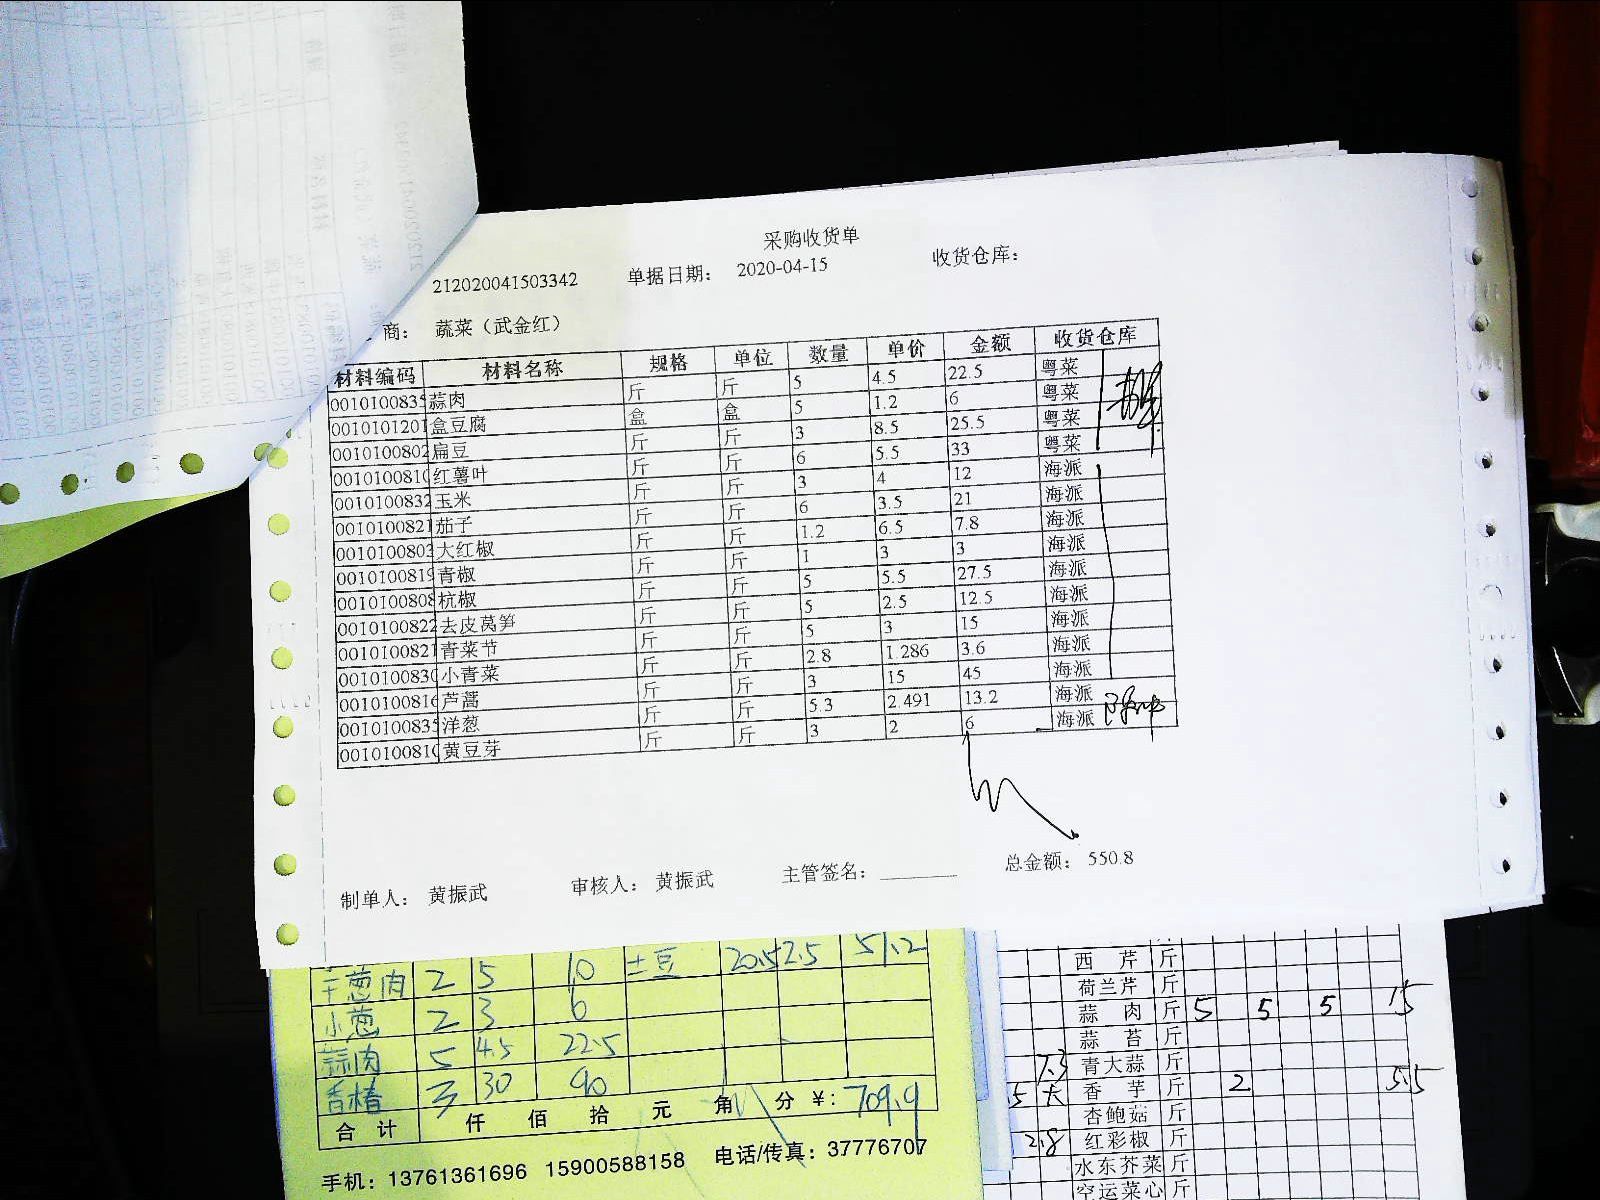 采购收货单
212020041503342 单据日期: 2020-04-15 收货仓库:
商: 蔬菜（武金红）
材料编码 材料名称 规格 单位 数量 单价 金额 收货仓库
0010100835 蒜肉 斤 斤 5 4.5 22.5 粤菜
0010101201 盒豆腐 盒 盒 5 1.2 6 粤菜
0010100802 扁豆 斤 斤 3 8.5 25.5 粤菜
001010081 红薯叶 斤 斤 6 5.5 33 粤菜
0010100832 玉米 斤 斤 3 4 12 海派
0010100821 茄子 斤 斤 6 3.5 21 海派
001010080 大红椒 斤 斤 1.2 6.5 7.8 海派
001010081 青椒 斤 斤 1 3 3 海派
0010100808 杭椒 斤 斤 5 5.5 27.5 海派
0010100822 去皮莴笋 斤 斤 5 2.5 12.5 海派
0010100821 青菜节 斤 斤 5 3 15 海派
001010083 小青菜 斤 斤 2.8 1.286 3.6 海派
001010081 芦蒿 斤 斤 3 15 45 海派
001010083 洋葱 斤 斤 5.3 2.491 13.2 海派
001010081 黄豆芽 斤 斤 3 2 6 海派
制单人: 黄振武 审核人: 黄振武 主管签名: 总金额: 550.8
干葱肉 2 5 10 土豆 20.5 2.5 51.2
小葱 2 3 6
蒜肉 5 4.5 22.5
香椿 3 30 90
合计 仟 佰 拾 元 角 分 ¥: 709.9
手机: 13761361696 15900588158 电话/传真: 37776707
西芹 斤
荷兰芹 斤
蒜肉 斤 5 5 5 15
蒜苔 斤
7.3 青大蒜 斤
香芋 斤 2 5.5
杏鲍菇 斤
2.8 红彩椒 斤
水东芥菜 斤
空运菜心 斤